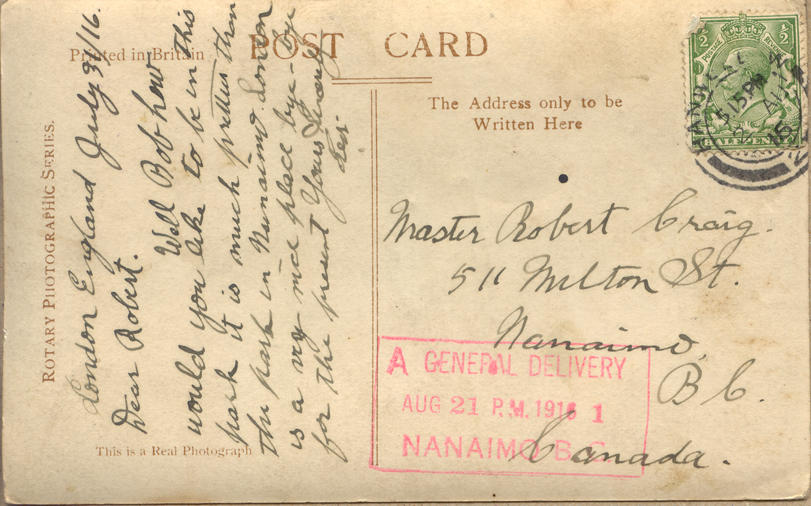 Printed in Britain
POST CARD
ROTARY PHOTOGRAPHIC SERIES.
This is a Real Photograph
The Address only to be
Written Here
London England July 31/16.
Dear Robert.
Well Bob how
would you like to be in this
park it is much prettier than
the park in Nanaimo London
is a very nice place bye-bye
for the present Yours
Master Robert Craig.
511 Milton St.
Nanaimo,
B C.
Canada.
A GENERAL DELIVERY
AUG 21 P.M. 1916 1
NANAIMO B.C.
POSTAGE
HALFPENNY